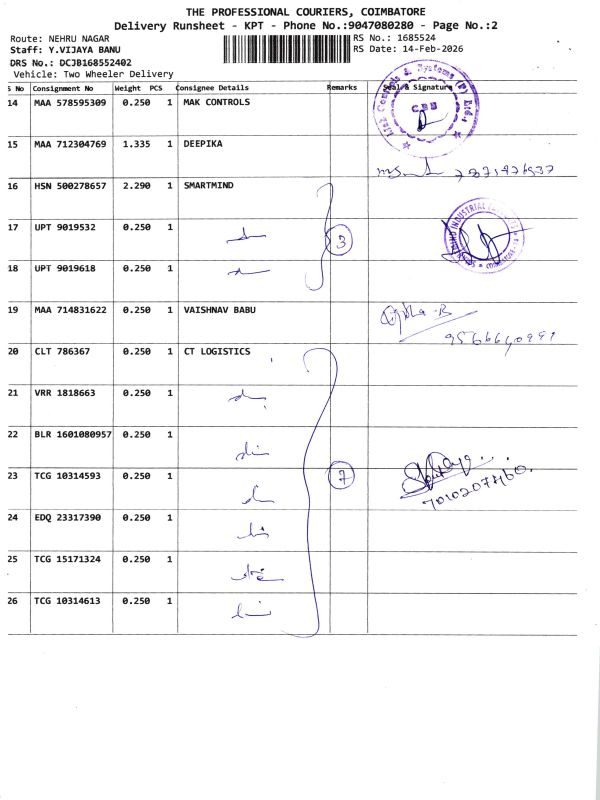 THE PROFESSIONAL COURIERS, COIMBATORE
Delivery Runsheet - KPT - Phone No.:9047080280 - Page No.:2
Route: NEHRU NAGAR
RS No.: 1685524
Staff: Y.VIJAYA BANU
RS Date: 14-Feb-2026
DRS No.: DCJB168552402
Vehicle: Two Wheeler Delivery
S No Consignment No Weight PCS Consignee Details Remarks Seal & Signature
14 MAA 578595309 0.250 1 MAK CONTROLS
CBE
15 MAA 712304769 1.335 1 DEEPIKA
16 HSN 500278657 2.290 1 SMARTMIND
17 UPT 9019532 0.250 1
3
18 UPT 9019618 0.250 1
19 MAA 714831622 0.250 1 VAISHNAV BABU
20 CLT 786367 0.250 1 CT LOGISTICS
21 VRR 1818663 0.250 1
22 BLR 1601080957 0.250 1
23 TCG 10314593 0.250 1
7
24 EDQ 23317390 0.250 1
25 TCG 15171324 0.250 1
26 TCG 10314613 0.250 1